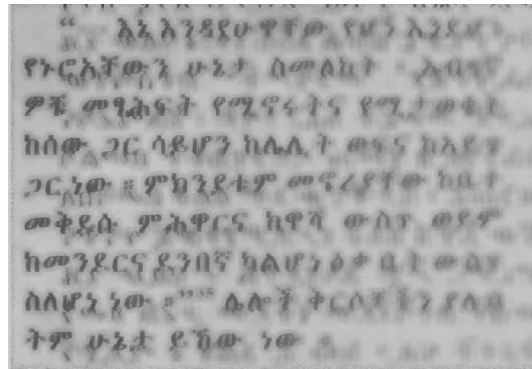 “ እኔ እንዳየሁዋቸው የሆነ እንደሆነ
የኑሮአቸውን ሁኔታ ስመለከት ፡ አብዛኛ
ዎቹ መጻሕፍት የሚኖሩትና የሚታወቁት
ከሰው ጋር ሳይሆን ከሌሊት ወፍና ከአይጥ
ጋር ነው ። ምክንያቱም መኖሪያቸው ከቤተ
መቅደሱ ምሕዋርና ከዋሻ ውስጥ ወይም
ከመንደርና ደንበኛ ካልሆነ ዕቃ ቤት ውስጥ
ስለሆነ ነው ።”¹⁵ ሌሎች ቅርሶቻችን ያሉበ
ትም ሁኔታ ይኸው ነው ።